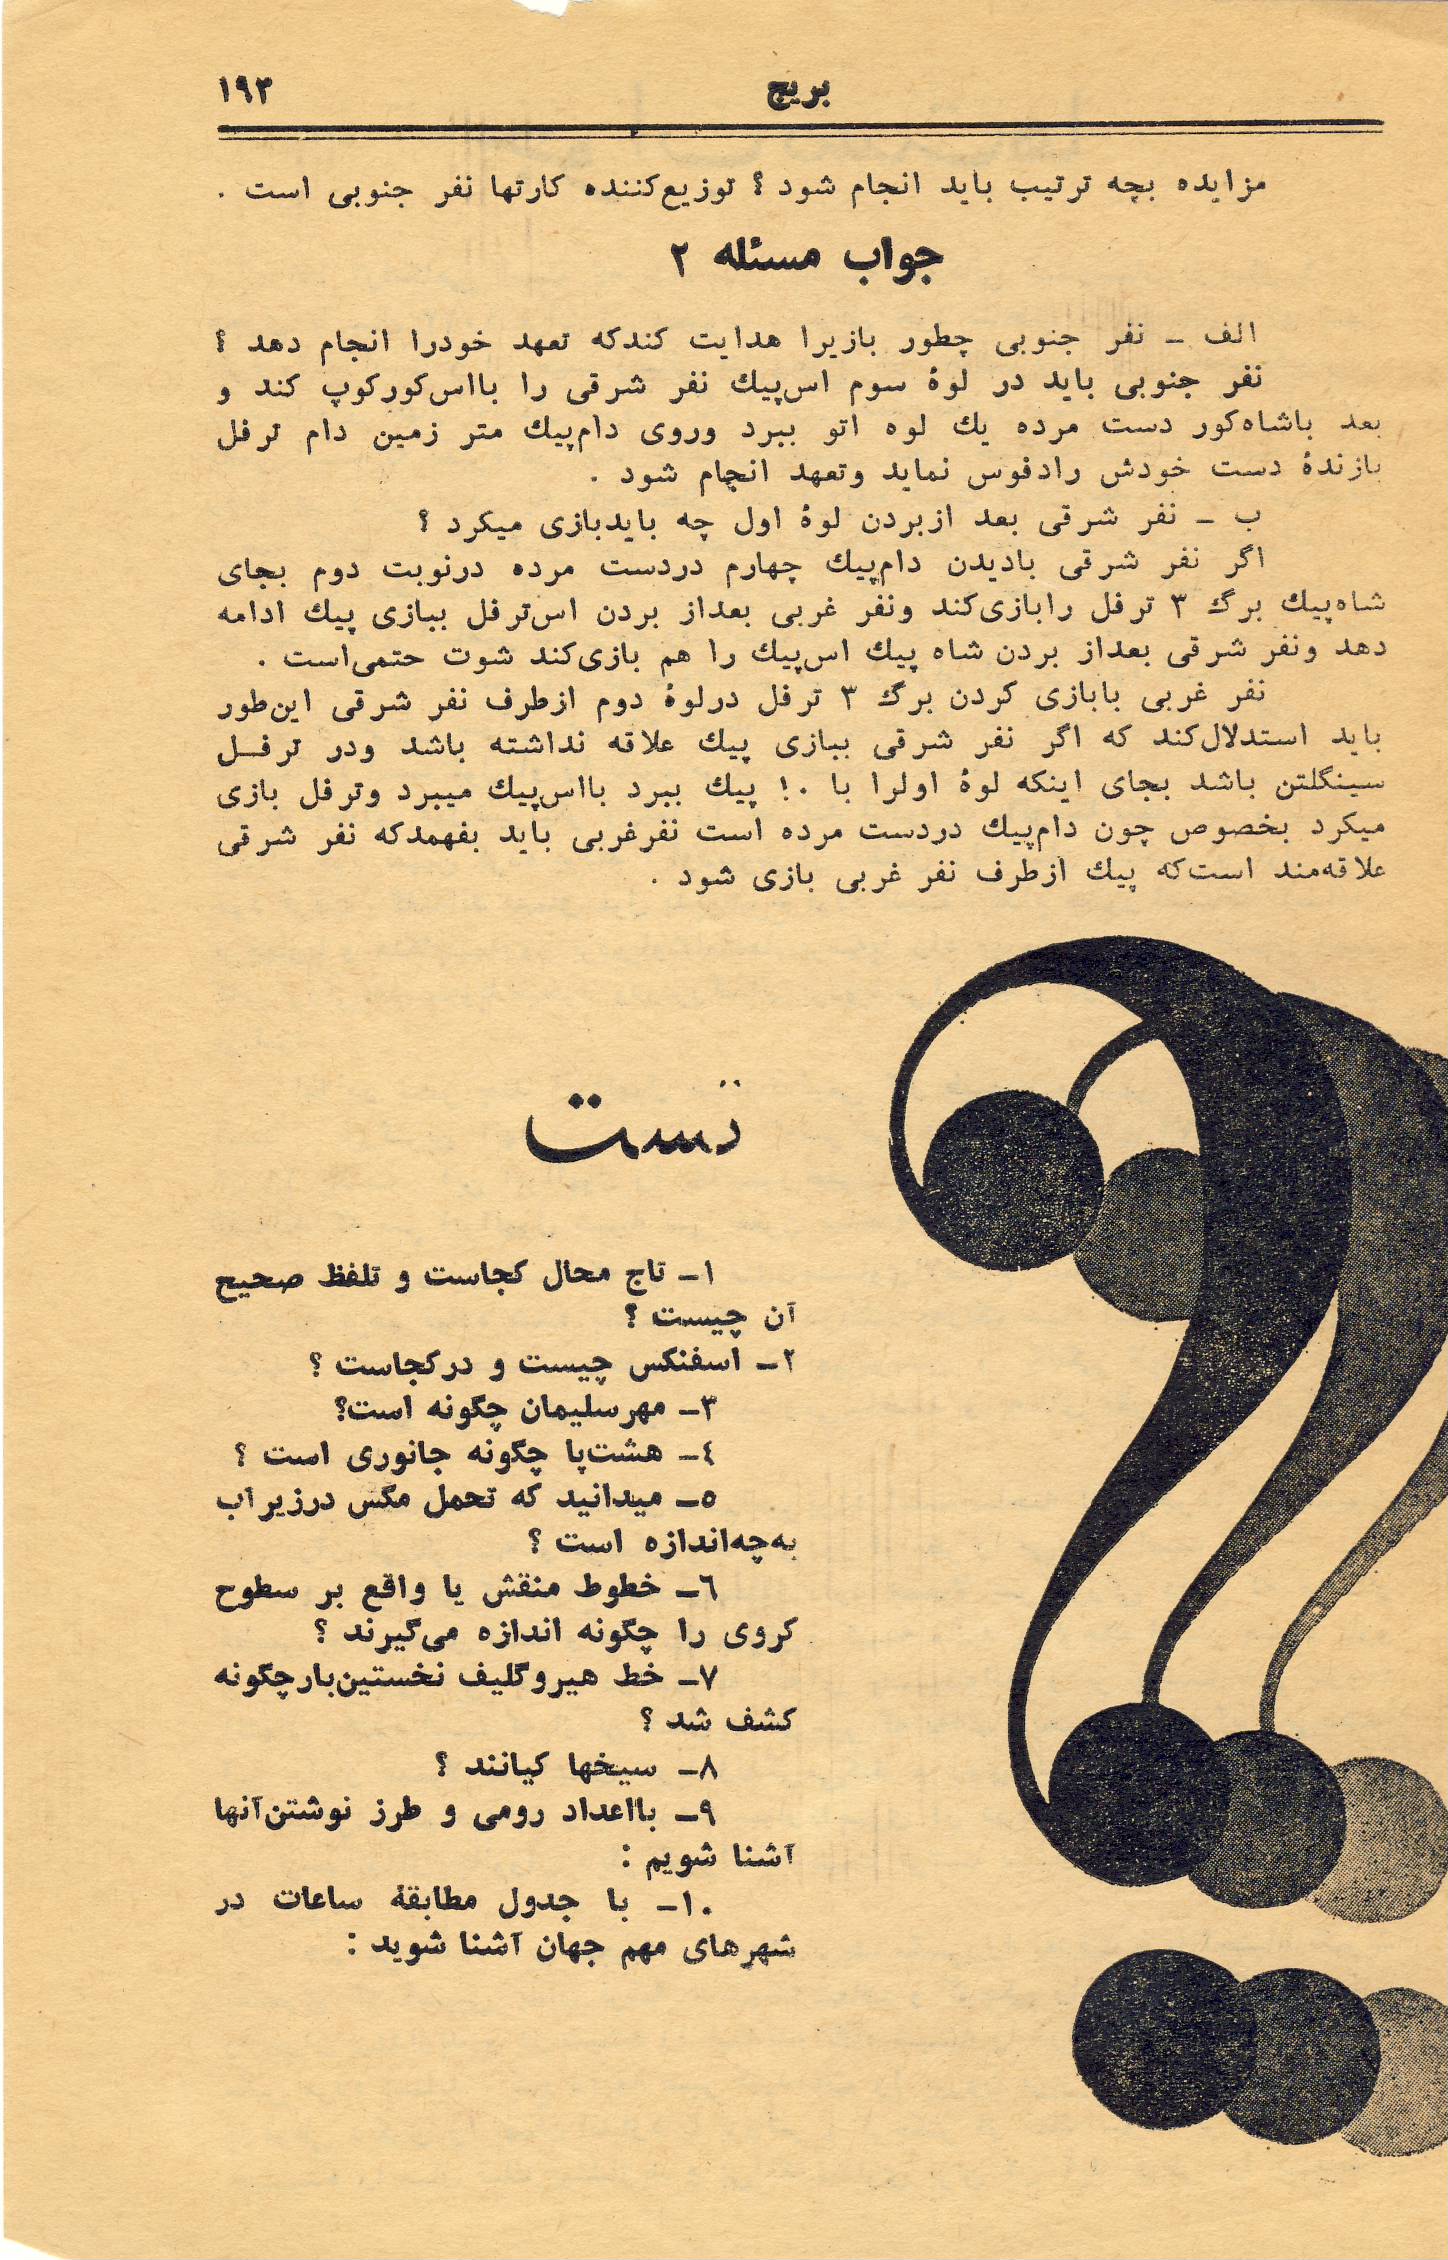 بریج
۱۹۳
مزایده بچه ترتیب باید انجام شود ؟ توزیع‌کننده کارتها نفر جنوبی است .
جواب مسئله ۲
الف ـ نفر جنوبی چطور بازیرا هدایت کندکه تعهد خودرا انجام دهد ؟
نفر جنوبی باید در لوهٔ سوم اس‌پیك نفر شرقی را بااس‌کورکوپ کند و
بعد باشاه‌کور دست مرده یك لوه اتو ببرد وروی دام‌پیك متر زمین دام ترفل
بازندهٔ دست خودش رادفوس نماید وتعهد انجام شود .
ب ـ نفر شرقی بعد ازبردن لوهٔ اول چه بایدبازی میکرد ؟
اگر نفر شرقی بادیدن دام‌پیك چهارم دردست مرده درنوبت دوم بجای
شاه‌پیك برگ ۳ ترفل رابازی‌کند ونفر غربی بعداز بردن اس‌ترفل ببازی پیك ادامه
دهد ونفر شرقی بعداز بردن شاه پیك اس‌پیك را هم بازی‌کند شوت حتمی‌است .
نفر غربی بابازی کردن برگ ۳ ترفل درلوهٔ دوم ازطرف نفر شرقی این‌طور
باید استدلال‌کند که اگر نفر شرقی ببازی پیك علاقه نداشته باشد ودر ترفــل
سینگلتن باشد بجای اینکه لوهٔ اولرا با ۱۰ پیك ببرد بااس‌پیك میبرد وترفل بازی
میکرد بخصوص چون دام‌پیك دردست مرده است نفرغربی باید بفهمدکه نفر شرقی
علاقه‌مند است‌که پیك ازطرف نفر غربی بازی شود .
تست
۱ـ تاج محال کجاست و تلفظ صحیح
آن چیست ؟
۲ـ اسفنکس چیست و درکجاست ؟
۳ـ مهرسلیمان چگونه است؟
٤ـ هشت‌پا چگونه جانوری است ؟
٥ـ میدانید که تحمل مگس درزیرآب
به‌چه‌اندازه است ؟
٦ـ خطوط منقش یا واقع بر سطوح
کروی را چگونه اندازه می‌گیرند ؟
۷ـ خط هیروگلیف نخستین‌بارچگونه
کشف شد ؟
۸ـ سیخها کیانند ؟
۹ـ بااعداد رومی و طرز نوشتن‌آنها
آشنا شویم :
۱۰ـ با جدول مطابقهٔ ساعات در
شهرهای مهم جهان آشنا شوید :